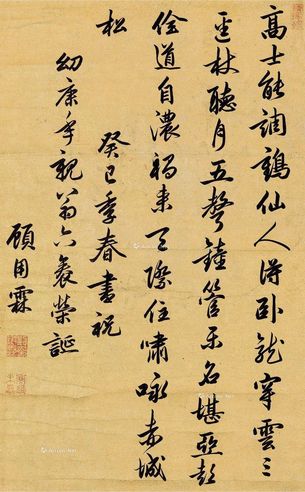 高士能調鶴仙人得臥龍穿雲三
逕杖聽月五聲鐘管樂名堪亞彭
佺道自濃朅來天際住嘯咏赤城
松
癸巳季春書祝
幼康年親翁六袠榮誕
顧用霖